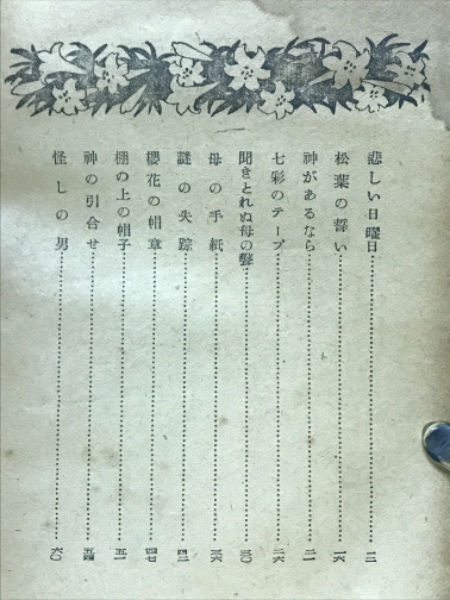 悲しい日曜日…………一二
松葉の誓い…………一六
神があるなら…………二一
七彩のテープ…………二六
聞きとれぬ母の聲…………三〇
母の手紙…………三六
謎の失踪…………四二
櫻花の帽章…………四七
棚の上の帽子…………五一
神の引合せ…………五四
怪しの男…………六〇